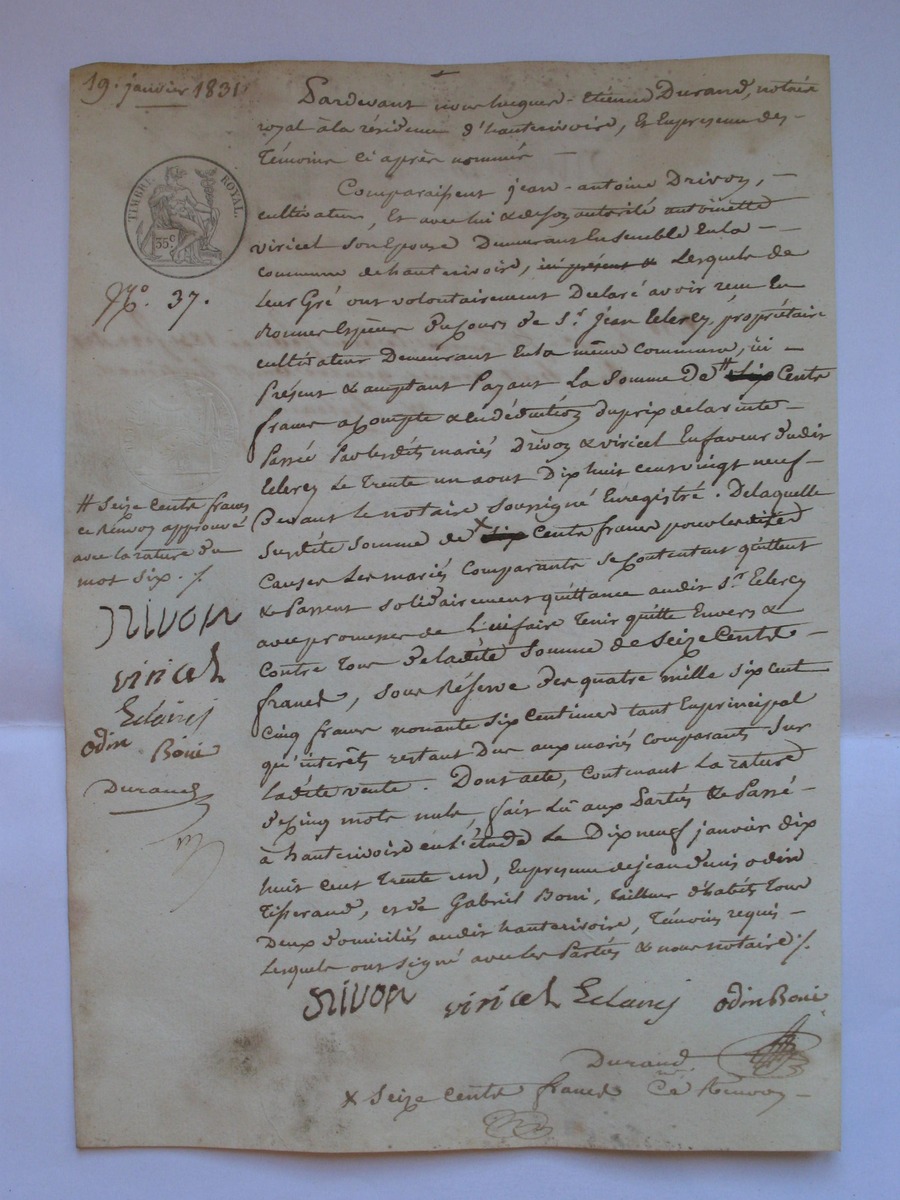 19. janvier 1831
Pardevant nous hugues-Etienne Durand, notaire
royal à la résidence d'hauterivoire, Et En presence des
Témoins ci après nommés
Comparaissent jean-antoine Drivon,
cultivateur, Et avec lui & de son autorité antoinette
viricel son Epouse Demeurant Ensemble En la
commune de hauterivoire, ici présent & Lesquels de
Leur Gré ont volontairement Déclaré avoir reçu En
du jours de Sr. jean Eclercy, propriétaire
cultivateur Demeurant En la même Commune, ici
Présent & acceptant Payant La Somme De # six Cents
francs acompte & En déduction du prix de la vente
Passée Par lesdits mariés Drivon & viricel En faveur dudit
Eclercy Le Trente un aout Dix huit cent vingt neuf
Devant Le notaire soussigné Enregistré. De laquelle
Susdite Somme de x six Cents francs pour lesdites
Causes Les mariés Comparants se Contentent quittent
& Passent solidairement quittance audit Sr. Eclercy
avec promesse de L'en faire Tenir quitte Envers &
Contre Tous De ladite Somme de Seize Cents
francs, sous Réserve des quatre mille six cent
Cinq francs nonante six Centimes tant En principal
qu'intérêts restant Dus aux mariés comparants Sur
Ladite vente. Dont acte, contenant La rature
De Cinq mots nuls, fait Lu aux Parties & Passé
à hauterivoire En L'étude Le Dix neuf janvier dix
huit cent Trente un, En presence de jean denis odin
Tisserand, et de Gabriel Boni, Tailleur d'habits Tous
Deux domiciliés audit hauterivoire, Témoins requis
Lesquels ont signé avec les Parties & nous notaire ./.
TIMBRE ROYAL.
35 c
No. 37.
# Seize Cents francs
ce Renvoy approuvé
avec la rature du
mot six. ./.
Drivon
viricel
Eclercy
odin Boni
Durand
Drivon viricel Eclercy odin Boni
Durand
x Seize Cents francs Ce Renvoy